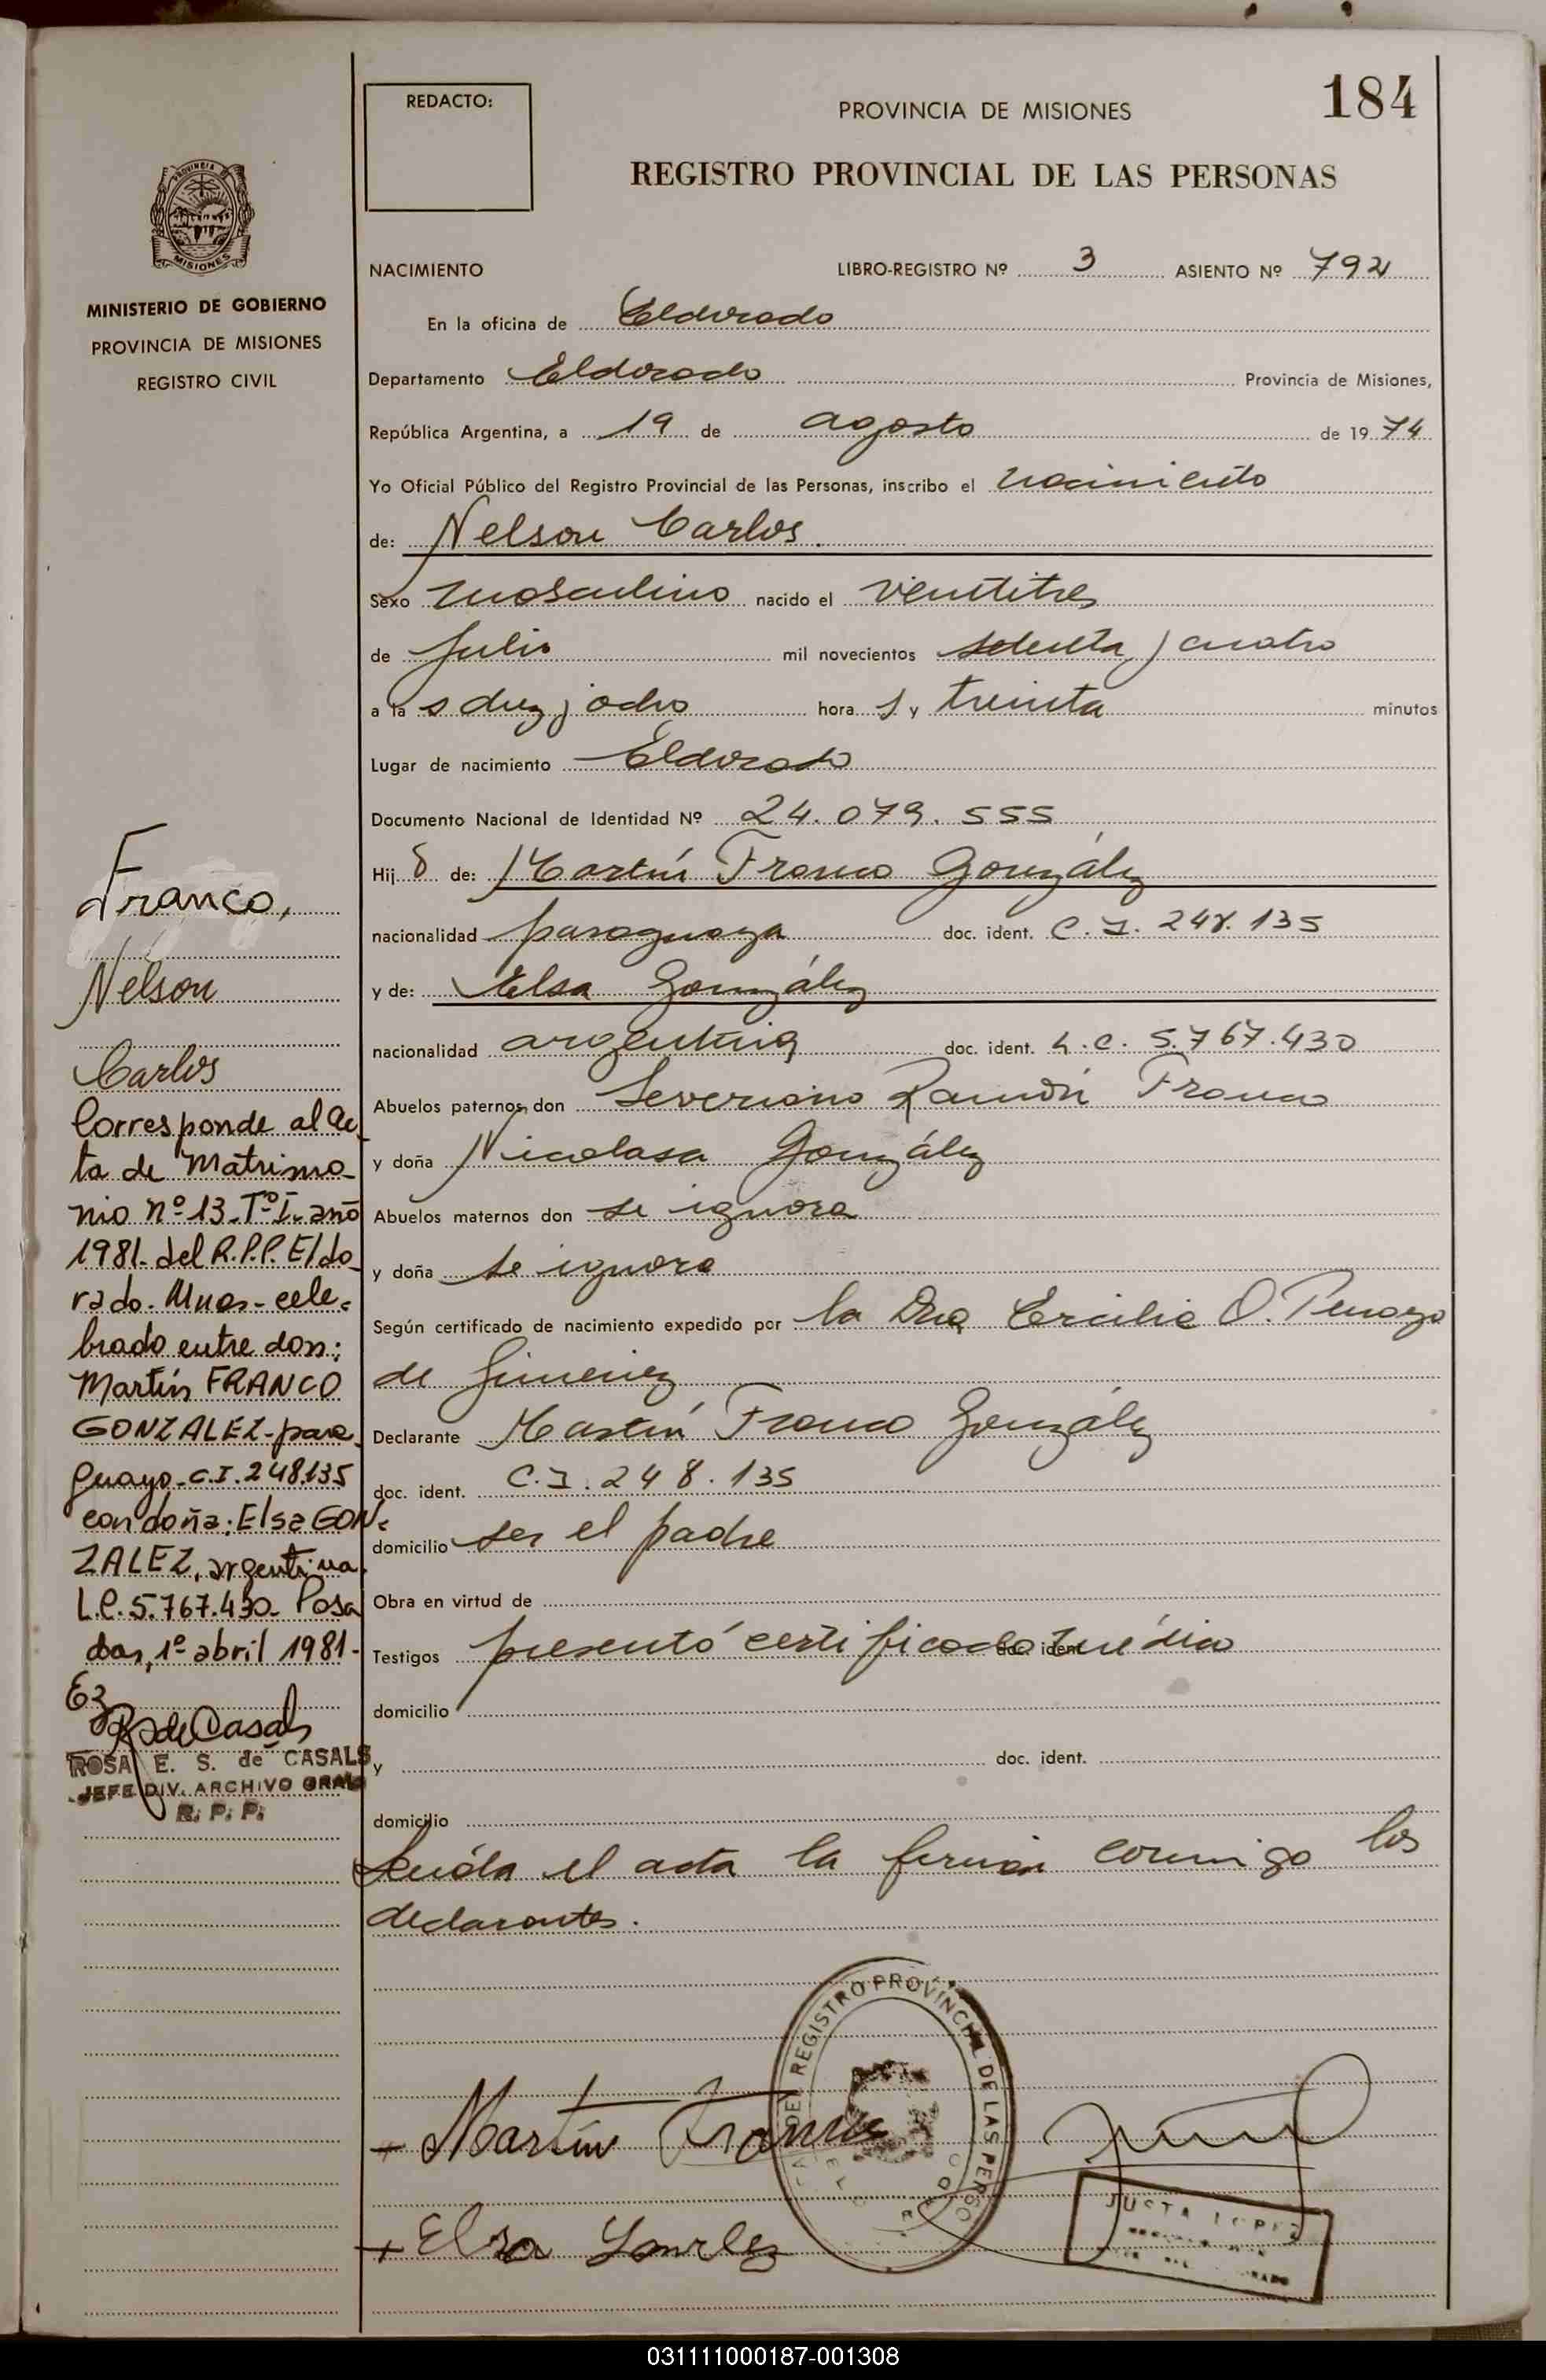 REDACTO:
PROVINCIA DE MISIONES
184
REGISTRO PROVINCIAL DE LAS PERSONAS
PROVINCIA DE
MISIONES
MINISTERIO DE GOBIERNO
PROVINCIA DE MISIONES
REGISTRO CIVIL
NACIMIENTO LIBRO-REGISTRO Nº 3 ASIENTO Nº 792
En la oficina de Eldorado
Departamento Eldorado Provincia de Misiones,
República Argentina, a 19 de agosto de 1974
Yo Oficial Público del Registro Provincial de las Personas, inscribo el nacimiento
de: Nelson Carlos.
Sexo masculino nacido el veintitres
de Julio mil novecientos setenta y cuatro
a la s diez y ocho hora s y treinta minutos
Lugar de nacimiento Eldorado
Documento Nacional de Identidad Nº 24.079.555
Hij o de: Martín Franco González
nacionalidad paraguaya doc. ident. C.I. 248.135
y de: Elsa González
nacionalidad argentina doc. ident. L.C. 5.767.430
Abuelos paternos, don Severiano Ramón Franco
y doña Nicolasa González
Abuelos maternos don se ignora
y doña se ignora
Según certificado de nacimiento expedido por la Dra Ercilia O. Penayo
de Gimenez
Declarante Martín Franco González
doc. ident. C.I. 248.135
domicilio ser el padre
Obra en virtud de
Testigos presentó certificado médico doc. ident.
domicilio
y doc. ident.
domicilio
Leída el acta la firman conmigo los
declarantes.
Franco,
Nelson
Carlos
Corresponde al Ac
ta de Matrimo-
nio nº 13-Tº I-año
1981-del R.P.P. Eldo-
rado-Mnes-cele-
brado entre don:
Martín FRANCO
GONZALEZ-para
guayo-C.I.248.135
con doña: Elsa GON-
ZALEZ, argentina
L.C. 5.767.430- Posa
das, 1º abril 1981-
R de Casals
ROSA E. S. de CASALS
JEFE DIV. ARCHIVO GRAL
R. P. P.
REGISTRO PROVINCIAL DE LAS PERSO
Martín Franco
JUSTA LOPEZ
Elsa Gonzlez
031111000187-001308